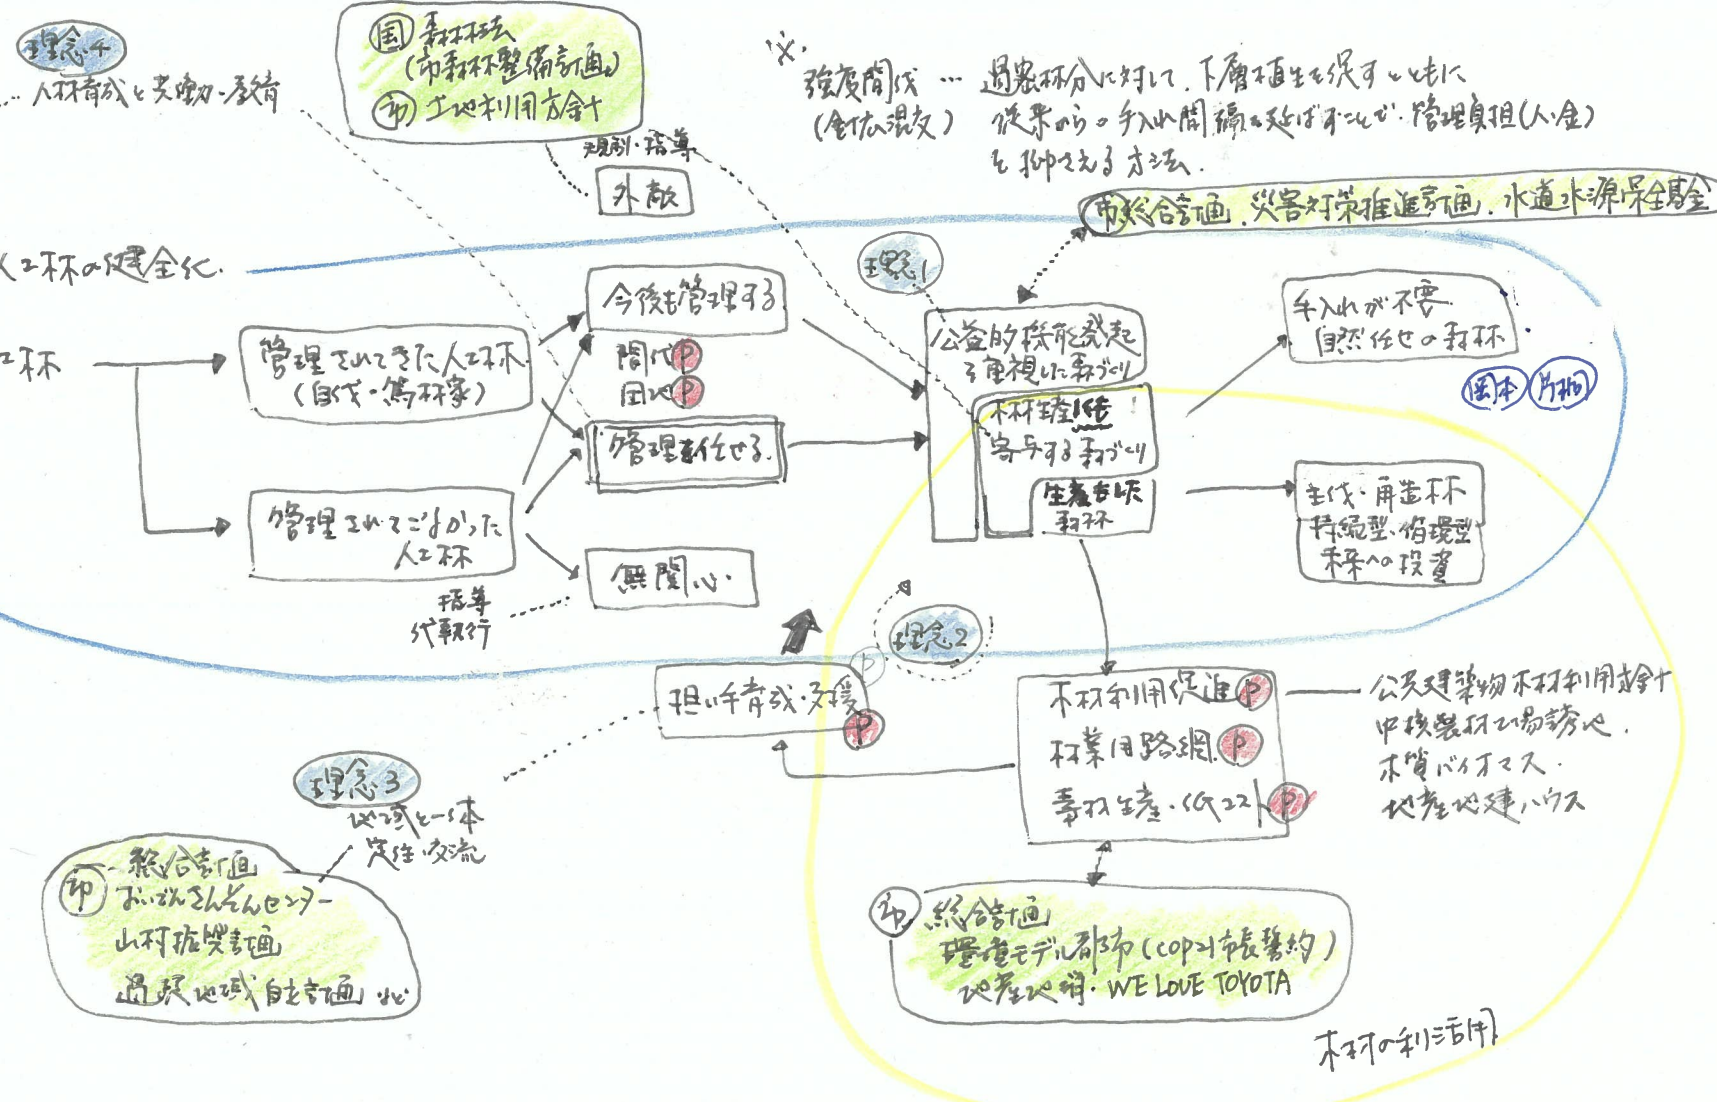 理念4
人材育成と共働・教育
国 森林法
(市森林整備計画)
市 土地利用方針
規制・指導
外敵
※
強度間伐 … 過密林分に対して、下層植生を促すとともに
(針広混交) 従来からの手入れ間隔を延ばすことで、管理負担(人・金)
を抑さえる方法.
市総合計画、災害対策推進計画、水道水源保全基金
人工林の健全化.
理念1
工林
管理されてきた人工林
(自伐・篤林家)
今後も管理する
間伐 P
団地 P
管理を任せる.
管理されてこなかった
人工林
無関心.
指導
代執行
公益的機能発起
を重視した森づくり
木材生産に
寄与する森づくり
した
森林
手入れが不要
自然任せの森林
岡本
主伐・再造林
持続型・循環型
未来への投資
理念2
担い手育成・支援
P
P
木材利用促進 P
林業用路網. P
素材生産・ P
公共建築物木材利用方針
中核製材工場誘地.
木質バイオマス.
地産地建ハウス
理念3
地域と一体
定住・交流
市 総合計画
おいでんさんそんセンター
山村振興計画
過疎地域自立計画 など
市 総合計画
環境モデル都市(COP21市長誓約)
地産地消・WE LOVE TOYOTA
木材の利活用